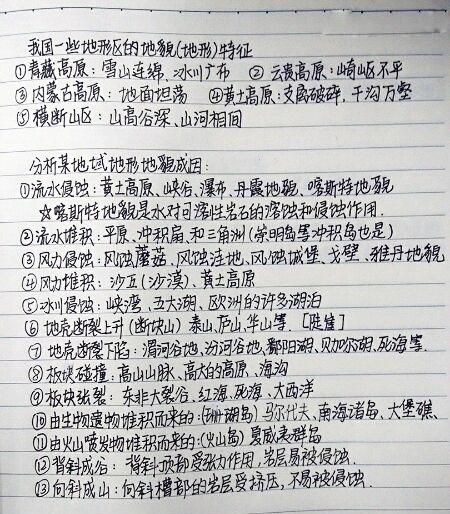 我国一些地形区的地貌(地形)特征
①青藏高原：雪山连绵，冰川广布 ②云贵高原：崎岖不平
③内蒙古高原：地面坦荡 ④黄土高原：支离破碎，千沟万壑
⑤横断山区：山高谷深、山河相间
分析某地域地形地貌成因：
①流水侵蚀：黄土高原、峡谷、瀑布、丹霞地貌、喀斯特地貌
☆喀斯特地貌是水对可溶性岩石的溶蚀和侵蚀作用.
②流水堆积：平原、冲积扇、和三角洲(崇明岛等冲积岛也是)
③风力侵蚀：风蚀蘑菇、风蚀洼地、风蚀城堡、戈壁、雅丹地貌
④风力堆积：沙丘(沙漠)、黄土高原
⑤冰川侵蚀：峡湾、五大湖、欧洲的许多湖泊
⑥地壳断裂上升(断块山) 泰山、庐山、华山等. [陡崖]
⑦地壳断裂下陷：渭河谷地、汾河谷地、鄱阳湖、贝加尔湖、死海等.
⑧板块碰撞：高山山脉、高大的高原、海沟
⑨板块张裂：东非大裂谷、红海、死海、大西洋
⑩由生物遗物堆积而来的：(珊瑚岛)马尔代夫、南海诸岛、大堡礁、
⑪由火山喷发物堆积而来的：(火山岛)夏威夷群岛
⑫背斜成谷：背斜顶部受张力作用，岩层易被侵蚀.
⑬向斜成山：向斜槽部的岩层受挤压，不易被侵蚀.